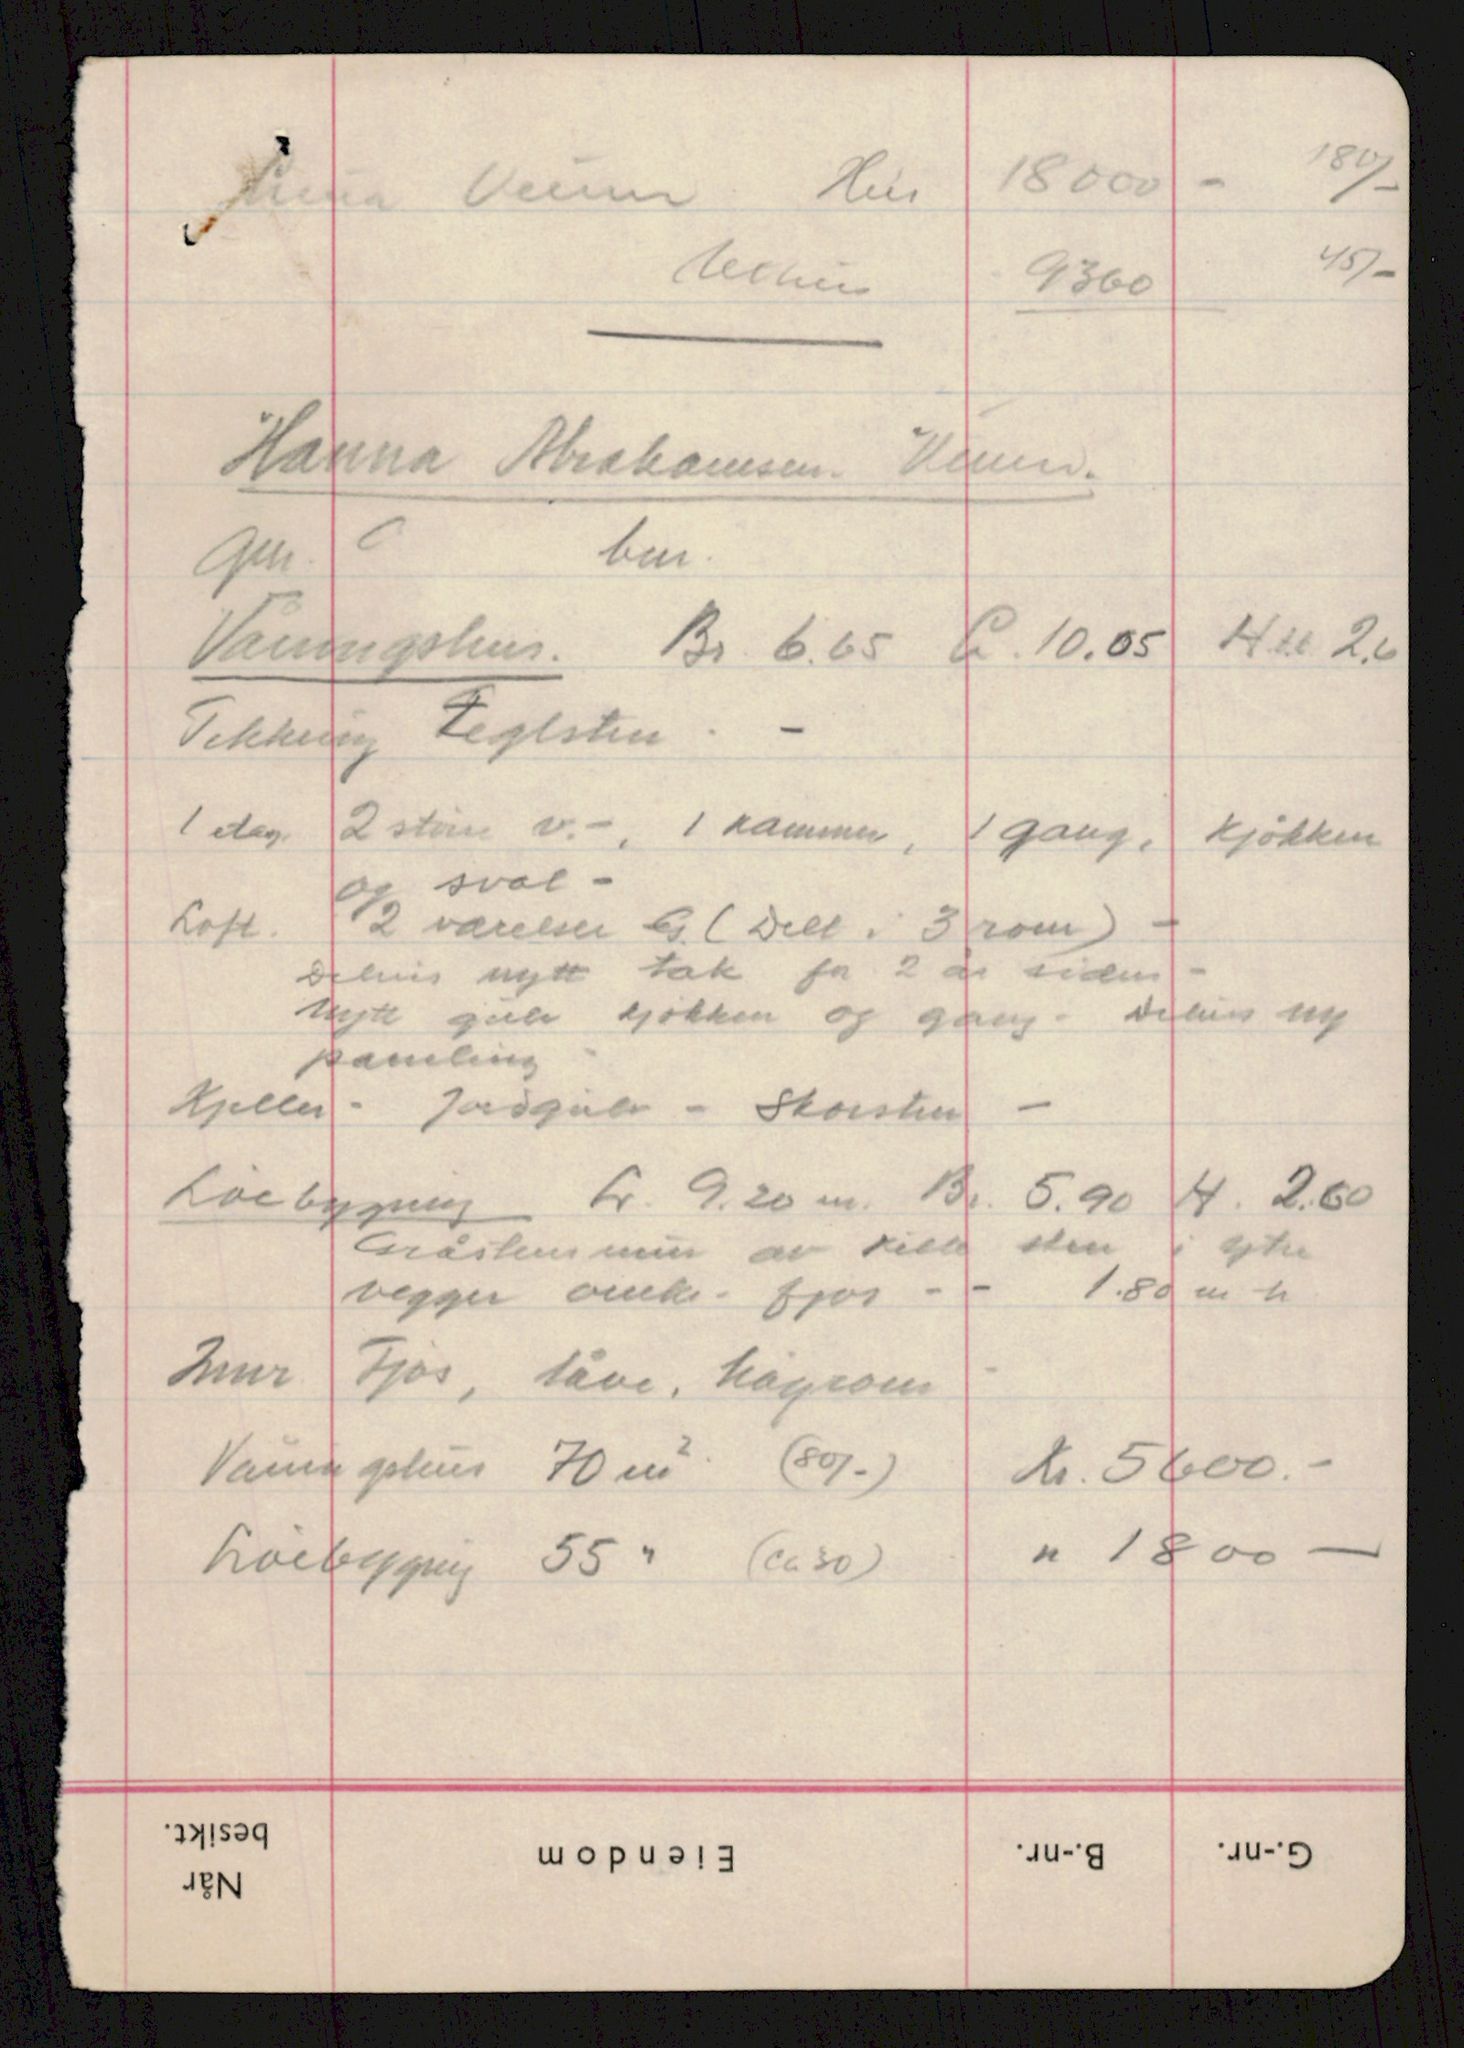 Hus 18000 - 180/-
Uthus 9360 45/-
Hanna Abrahamsen
gnr. bnr.
Våningshus. Br. 6.65 L. 10.05 H 2.6
Tekking Teglsten. -
1 etag. 2 större v. -, 1 kammer, 1 gang, kjökken
og sval -
Loft. 2 værelser (Delt i 3 rom) -
Delvis nytt tak for 2 år siden -
Nytt gulv kjökken og gang - Delvis ny
paneling -
Kjeller - Jordgulv - Skorsten -
Löebygning L. 9.20 m. Br. 5.90 H. 2.60
Gråstensmur av sten i ytre
vegger omkr. fjos - - 1.80 m h
Innr. Fjos, låve, höyrom -
Våningshus 70 m² (80/-) Kr. 5600.-
Löebygning 55 " (ca 30) " 1800 -
Når besikt.
Eiendom
B.-nr.
G.-nr.